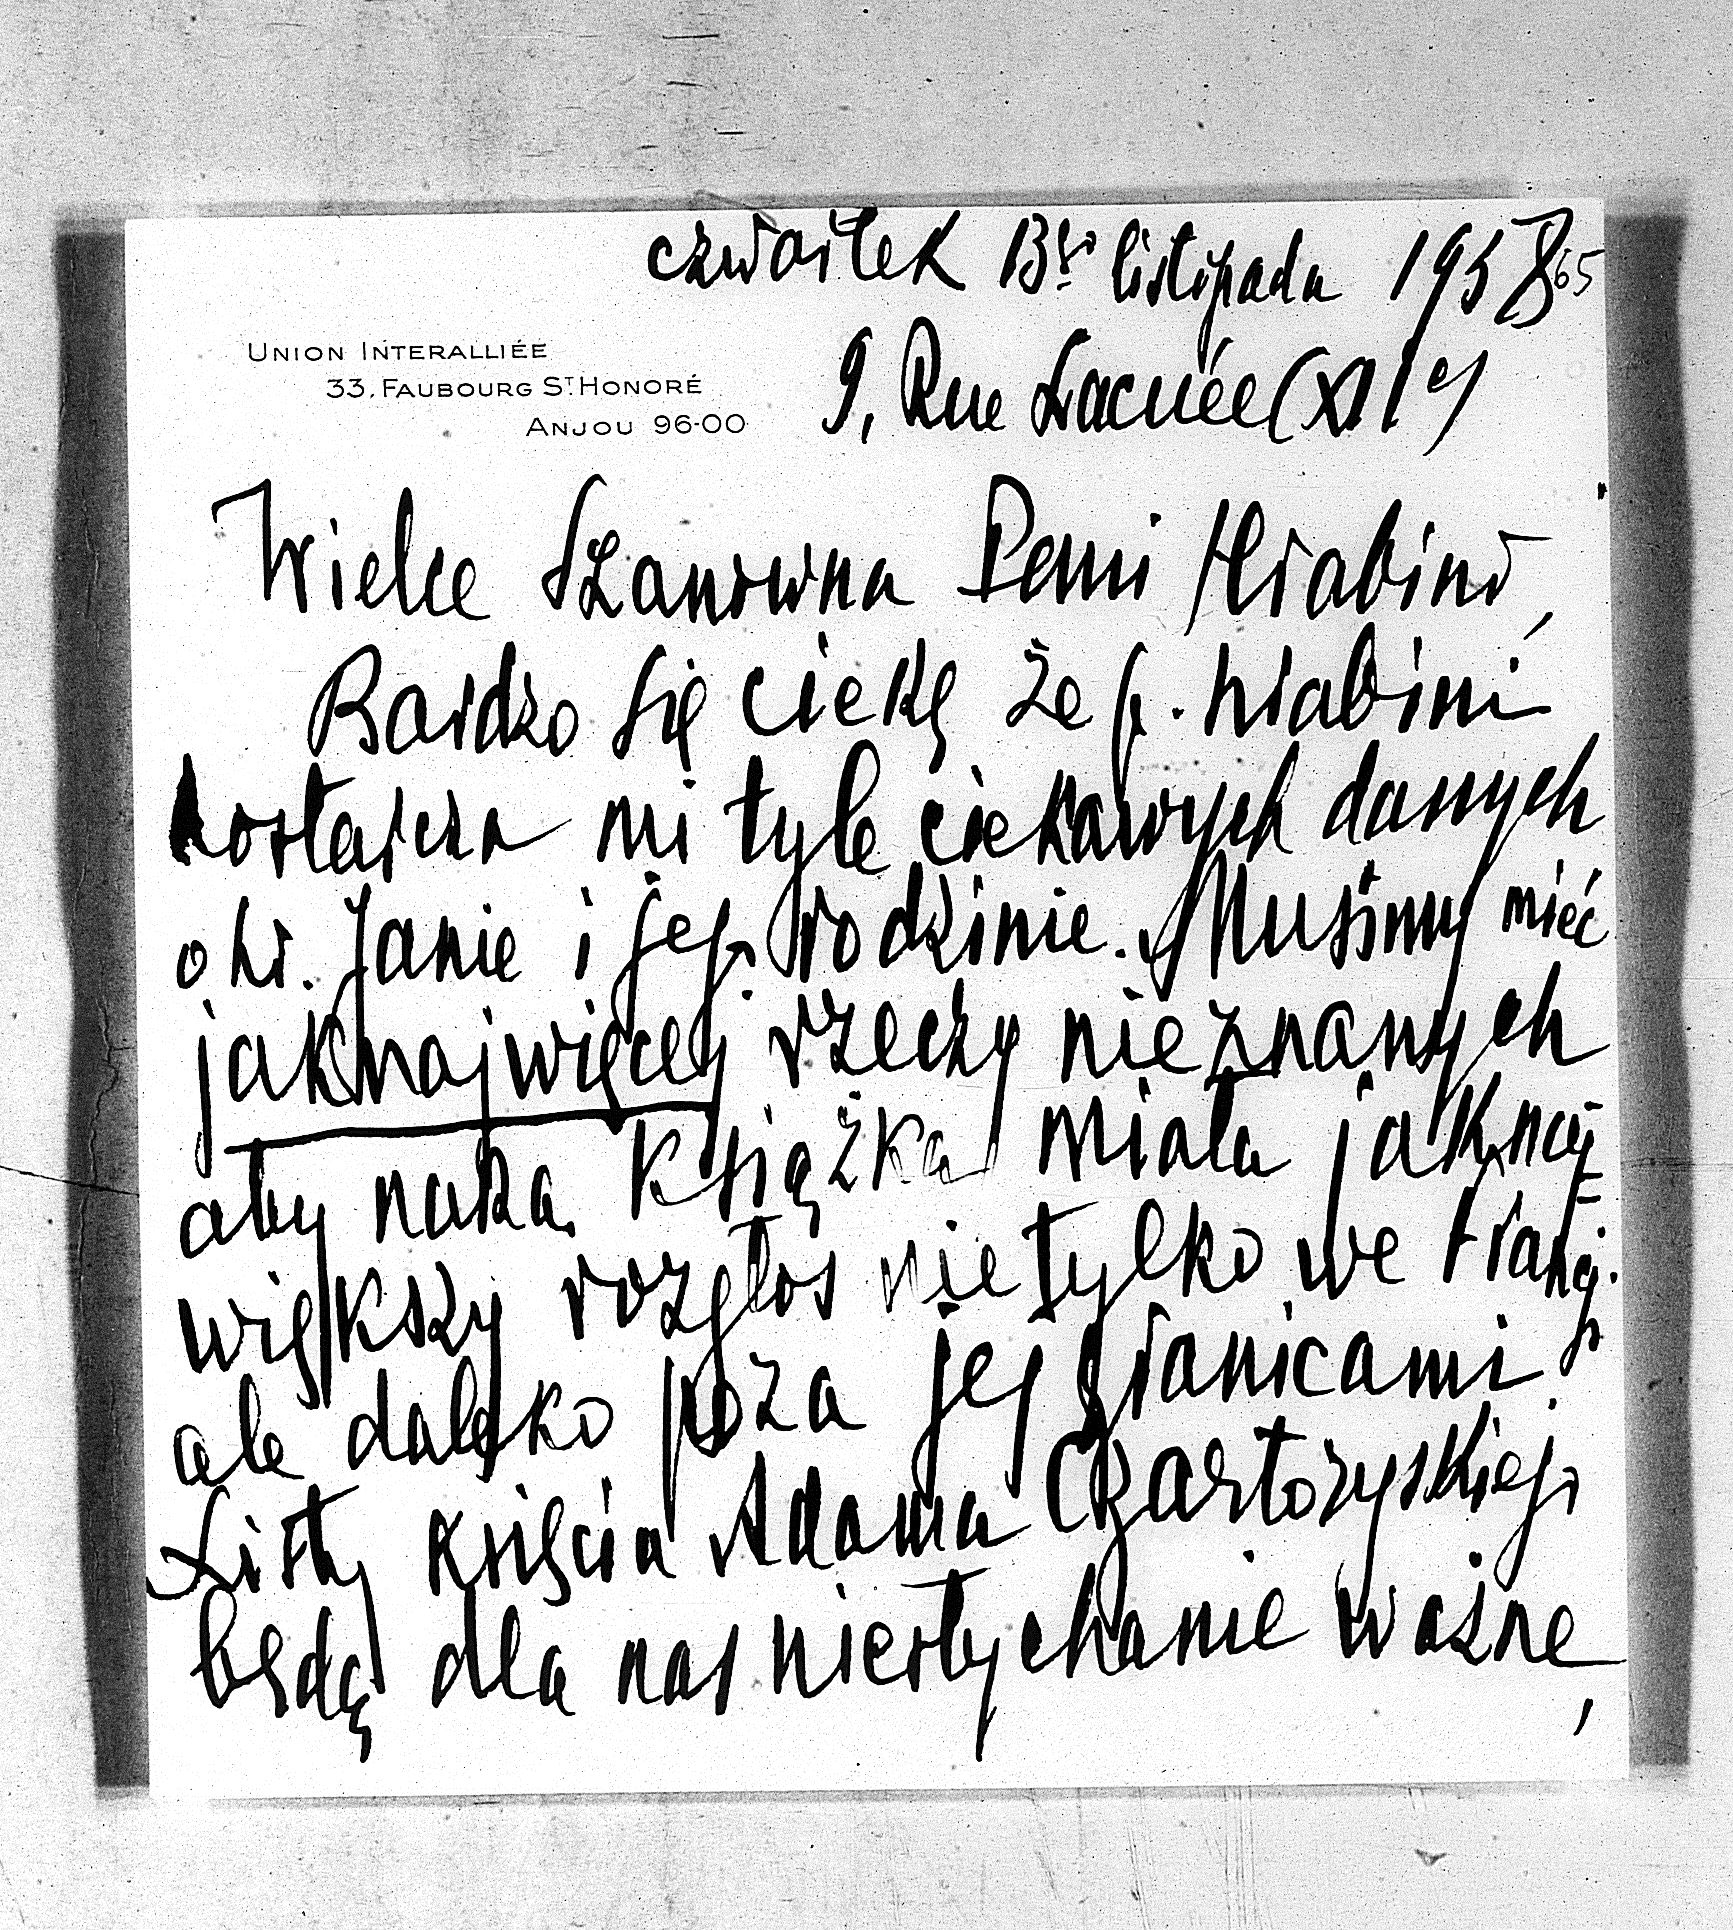 czwartek 13go listopada 1958
65
UNION INTERALLIÉE
33, FAUBOURG ST. HONORÉ
ANJOU 96-00
9, Rue Lacuée (XIIe)
Wielce Szanowna Pani Hrabino,
Bardzo się cieszę że p. hrabini
dostarcza mi tyle ciekawych danych
o hr. Janie i jego rodzinie. Musimy mieć
jaknajwięcej rzeczy nieznanych
aby nasza książka miała jaknaj-
większy rozgłos nietylko we Francji
ale daleko poza jej granicami.
Listy księcia Adama Czartoryskiego
będą dla nas niesłychanie ważne,